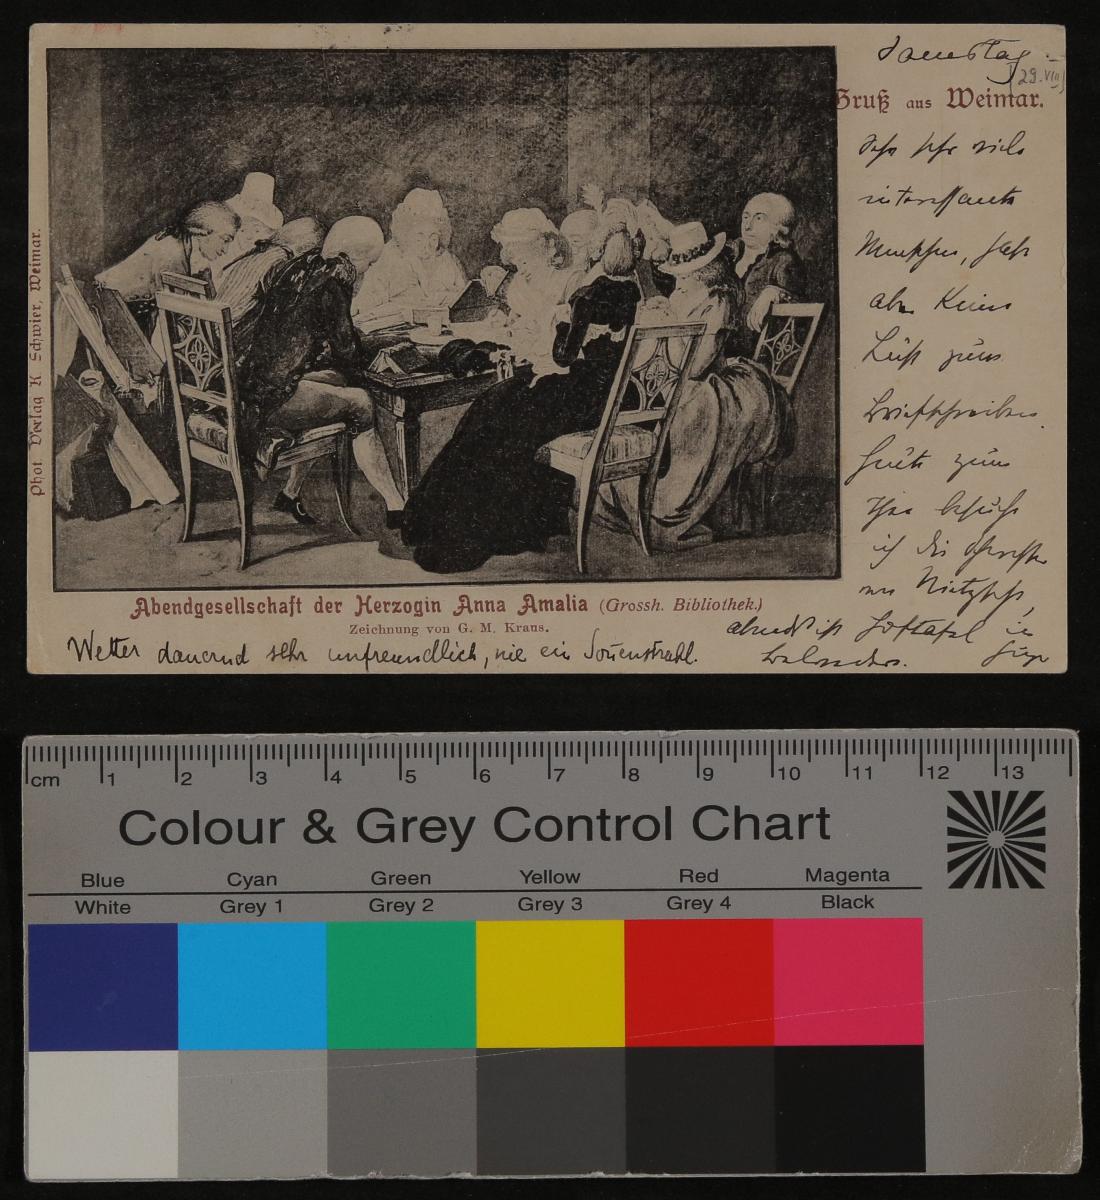 Samstag
(29.VIII)
Gruß aus Weimar.
Sehe sehr viele
interessante
Menschen, habe
aber keine
Lust zum
Briefschreiben.
Heute zum
Thee besuche
ich die Schwester
von Nietzsche,
abends ist Hoftafel in
Belvedere.
Wetter dauernd sehr unfreundlich, nie ein Sonenstrahl.
Phot. Verlag K Schwier, Weimar.
Abendgesellschaft der Herzogin Anna Amalia (Grossh. Bibliothek.)
Zeichnung von G. M. Kraus.
cm 1 2 3 4 5 6 7 8 9 10 11 12 13
Colour & Grey Control Chart
Blue Cyan Green Yellow Red Magenta
White Grey 1 Grey 2 Grey 3 Grey 4 Black